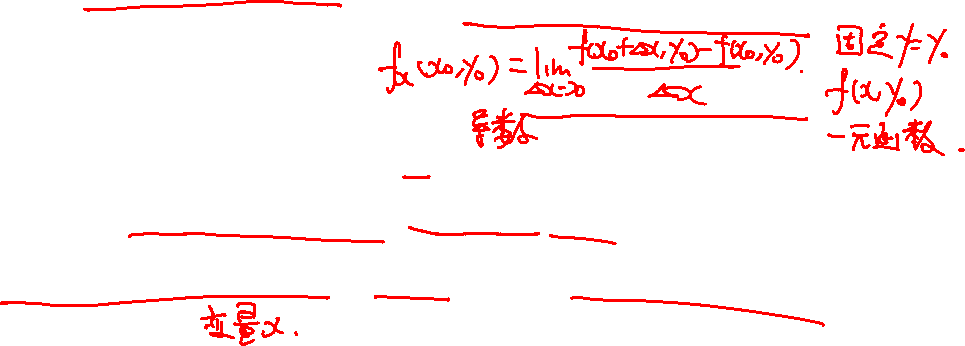 f_x(x_0, y_0) = lim_{Δx→0} \frac{f(x_0+Δx, y_0) - f(x_0, y_0)}{Δx}.
导数
固定 y=y_0
f(x, y_0)
一元函数.
变量x.